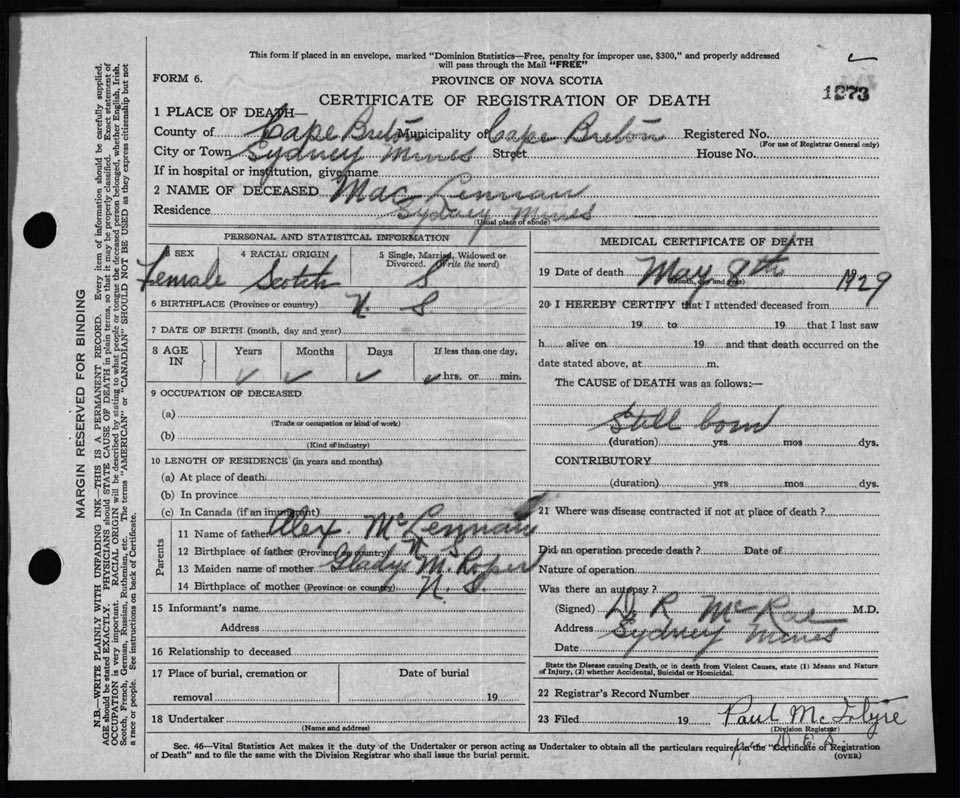 This form if placed in an envelope, marked "Dominion Statistics—Free, penalty for improper use, $300," and properly addressed
will pass through the Mail "FREE"
FORM 6.
PROVINCE OF NOVA SCOTIA
1273
CERTIFICATE OF REGISTRATION OF DEATH
1 PLACE OF DEATH—
County of Cape Breton Municipality of Cape Breton Registered No.
(For use of Registrar General only)
City or Town Sydney Mines Street House No.
If in hospital or institution, give name
2 NAME OF DECEASED Mac Lennan
Residence Sydney Mines
(Usual place of abode)
PERSONAL AND STATISTICAL INFORMATION
SEX 4 RACIAL ORIGIN 5 Single, Married, Widowed or
Divorced. (Write the word)
Female Scotch S
6 BIRTHPLACE (Province or country) N. S
7 DATE OF BIRTH (month, day and year)
8 AGE IN Years Months Days If less than one day,
hrs. or min.
9 OCCUPATION OF DECEASED
(a)
(Trade or occupation or kind of work)
(b)
(Kind of industry)
10 LENGTH OF RESIDENCE (in years and months)
(a) At place of death
(b) In province
(c) In Canada (if an immigrant)
Parents
11 Name of father Alex. McLennan
12 Birthplace of father (Province or country) N S
13 Maiden name of mother Gladys M. Roper
14 Birthplace of mother (Province or country) N. S.
15 Informant's name
Address
16 Relationship to deceased
17 Place of burial, cremation or Date of burial
removal 19
18 Undertaker
(Name and address)
MEDICAL CERTIFICATE OF DEATH
19 Date of death May 8th 1929
(Month, day and year)
20 I HEREBY CERTIFY that I attended deceased from
19 to 19 that I last saw
h alive on 19 and that death occurred on the
date stated above, at m.
The CAUSE of DEATH was as follows:—
Still born
(duration) yrs mos dys.
CONTRIBUTORY
(duration) yrs mos dys.
21 Where was disease contracted if not at place of death?
Did an operation precede death? Date of
Nature of operation
Was there an autopsy?
(Signed) D R McRae M.D.
Address Sydney Mines
Date
State the Disease causing Death, or in death from Violent Causes, state (1) Means and Nature
of Injury, (2) whether Accidental, Suicidal or Homicidal.
22 Registrar's Record Number
23 Filed 19 Paul McIntyre
(Division Registrar)
Sec. 46—Vital Statistics Act makes it the duty of the Undertaker or person acting as Undertaker to obtain all the particulars required in the "Certificate of Registration
of Death" and to file the same with the Division Registrar who shall issue the burial permit.
(OVER)
MARGIN RESERVED FOR BINDING
N.B.—WRITE PLAINLY WITH UNFADING INK—THIS IS A PERMANENT RECORD. Every item of information should be carefully supplied.
AGE should be stated EXACTLY. PHYSICIANS should STATE CAUSE OF DEATH in plain terms, so that it may be properly classified. Exact statement of
OCCUPATION is very important. RACIAL ORIGIN will be described by stating to what people or tongue the deceased person belonged, whether English, Irish,
Scotch, French, German, Russian, Ruthenian, etc. The terms "AMERICAN" or "CANADIAN" SHOULD NOT BE USED as they express citizenship but not
a race or people. See instructions on back of Certificate.